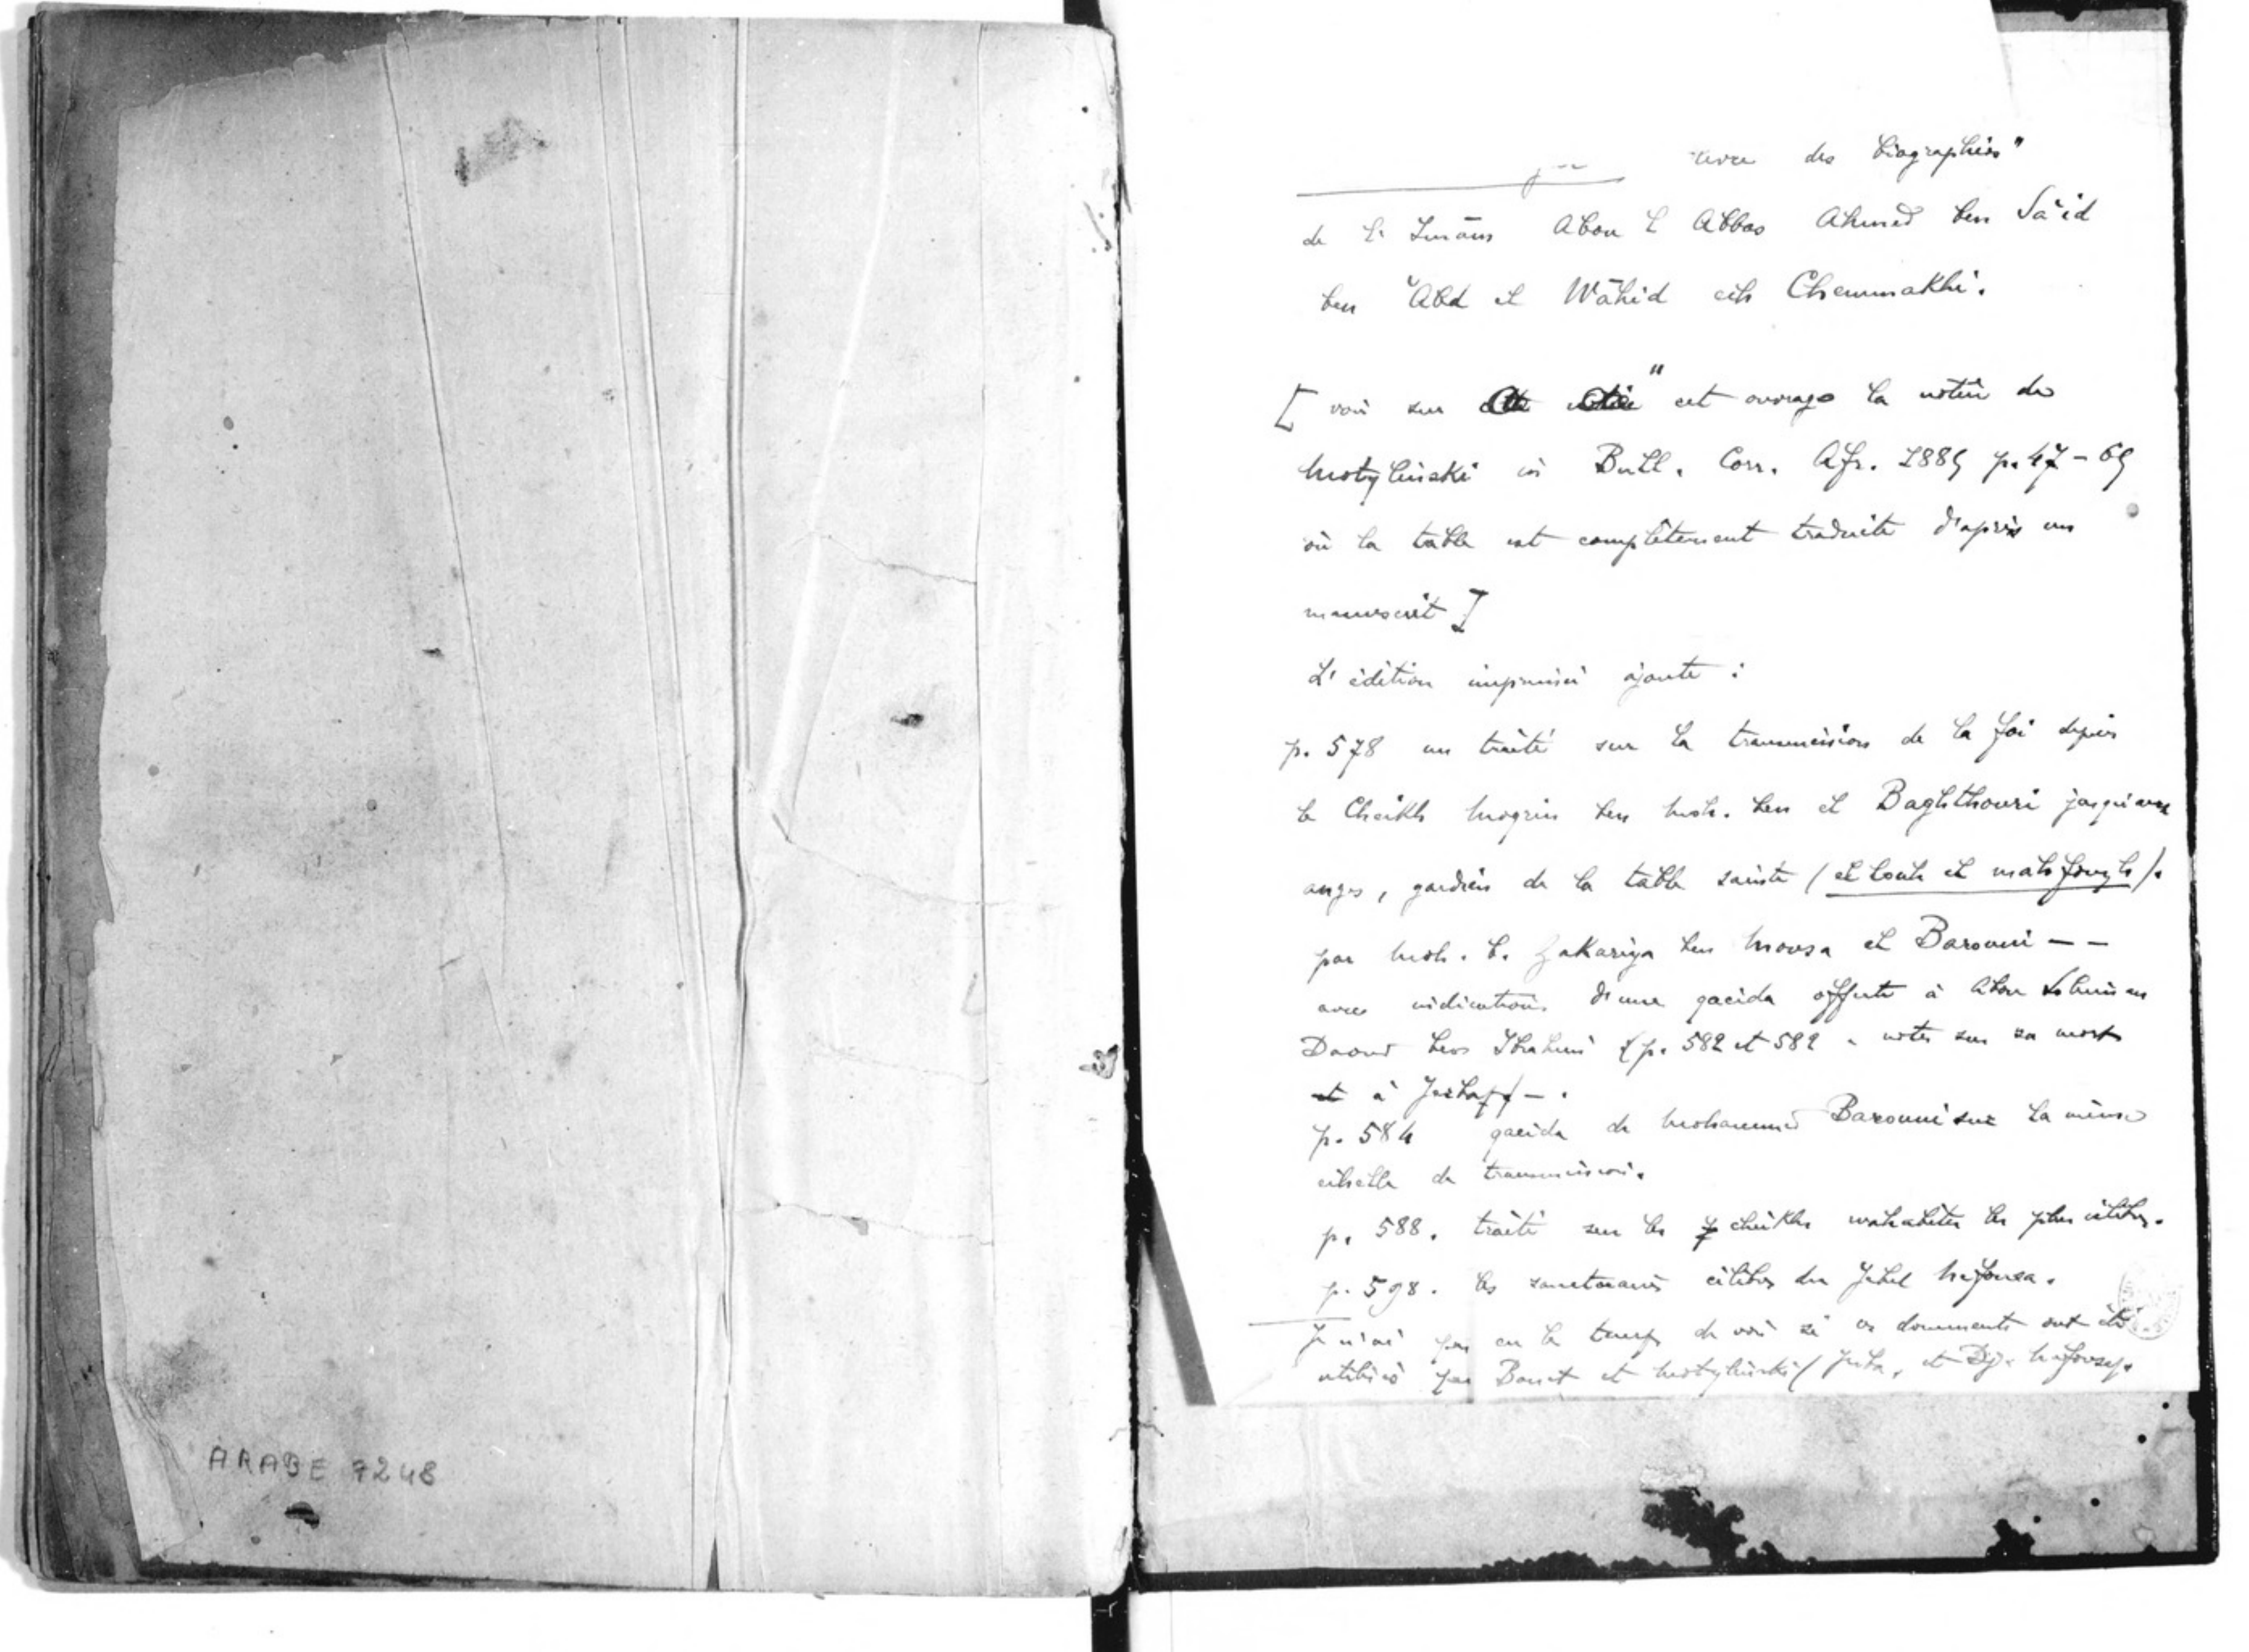 ARABE 7248
des biographies"
de l' Imām Abou l Abbas Ahmed ben Sa'id
ben 'Abd el Wāhid ech Chemmakhi.
[ voir sur cet ouvrage la notice de
Motylinski in Bull. Corr. Afr. 1885 p. 47-69
où la table est complètement traduite d'après un
manuscrit ]
L'édition imprimée ajoute :
p. 578 un traité sur la transmission de la foi depuis
le Cheikh Mogrin ben Moh. ben el Baghthouri jusqu'aux
anges, gardiens de la table sainte (el louh el mahfough).
par Moh. b. Zakariya ben Mousa el Barouni - -
avec indications d'une qacida offerte à Abou Sliman
Daoud ben Ibrahim (p. 582 et 582 notes sur sa mort
et à
p. 584 qacida de Mohammed Barouni sur la même
échelle de transmission.
p. 588. traité sur les cheikhs wahabites les plus célèbres.
p. 598. les sanctuaires célèbres du Jebel Nefousa.
Je n'ai pas eu le temps de voir si ces documents ont été
utilisés par Basset et Motylinski ( et Dj. Nefousa).